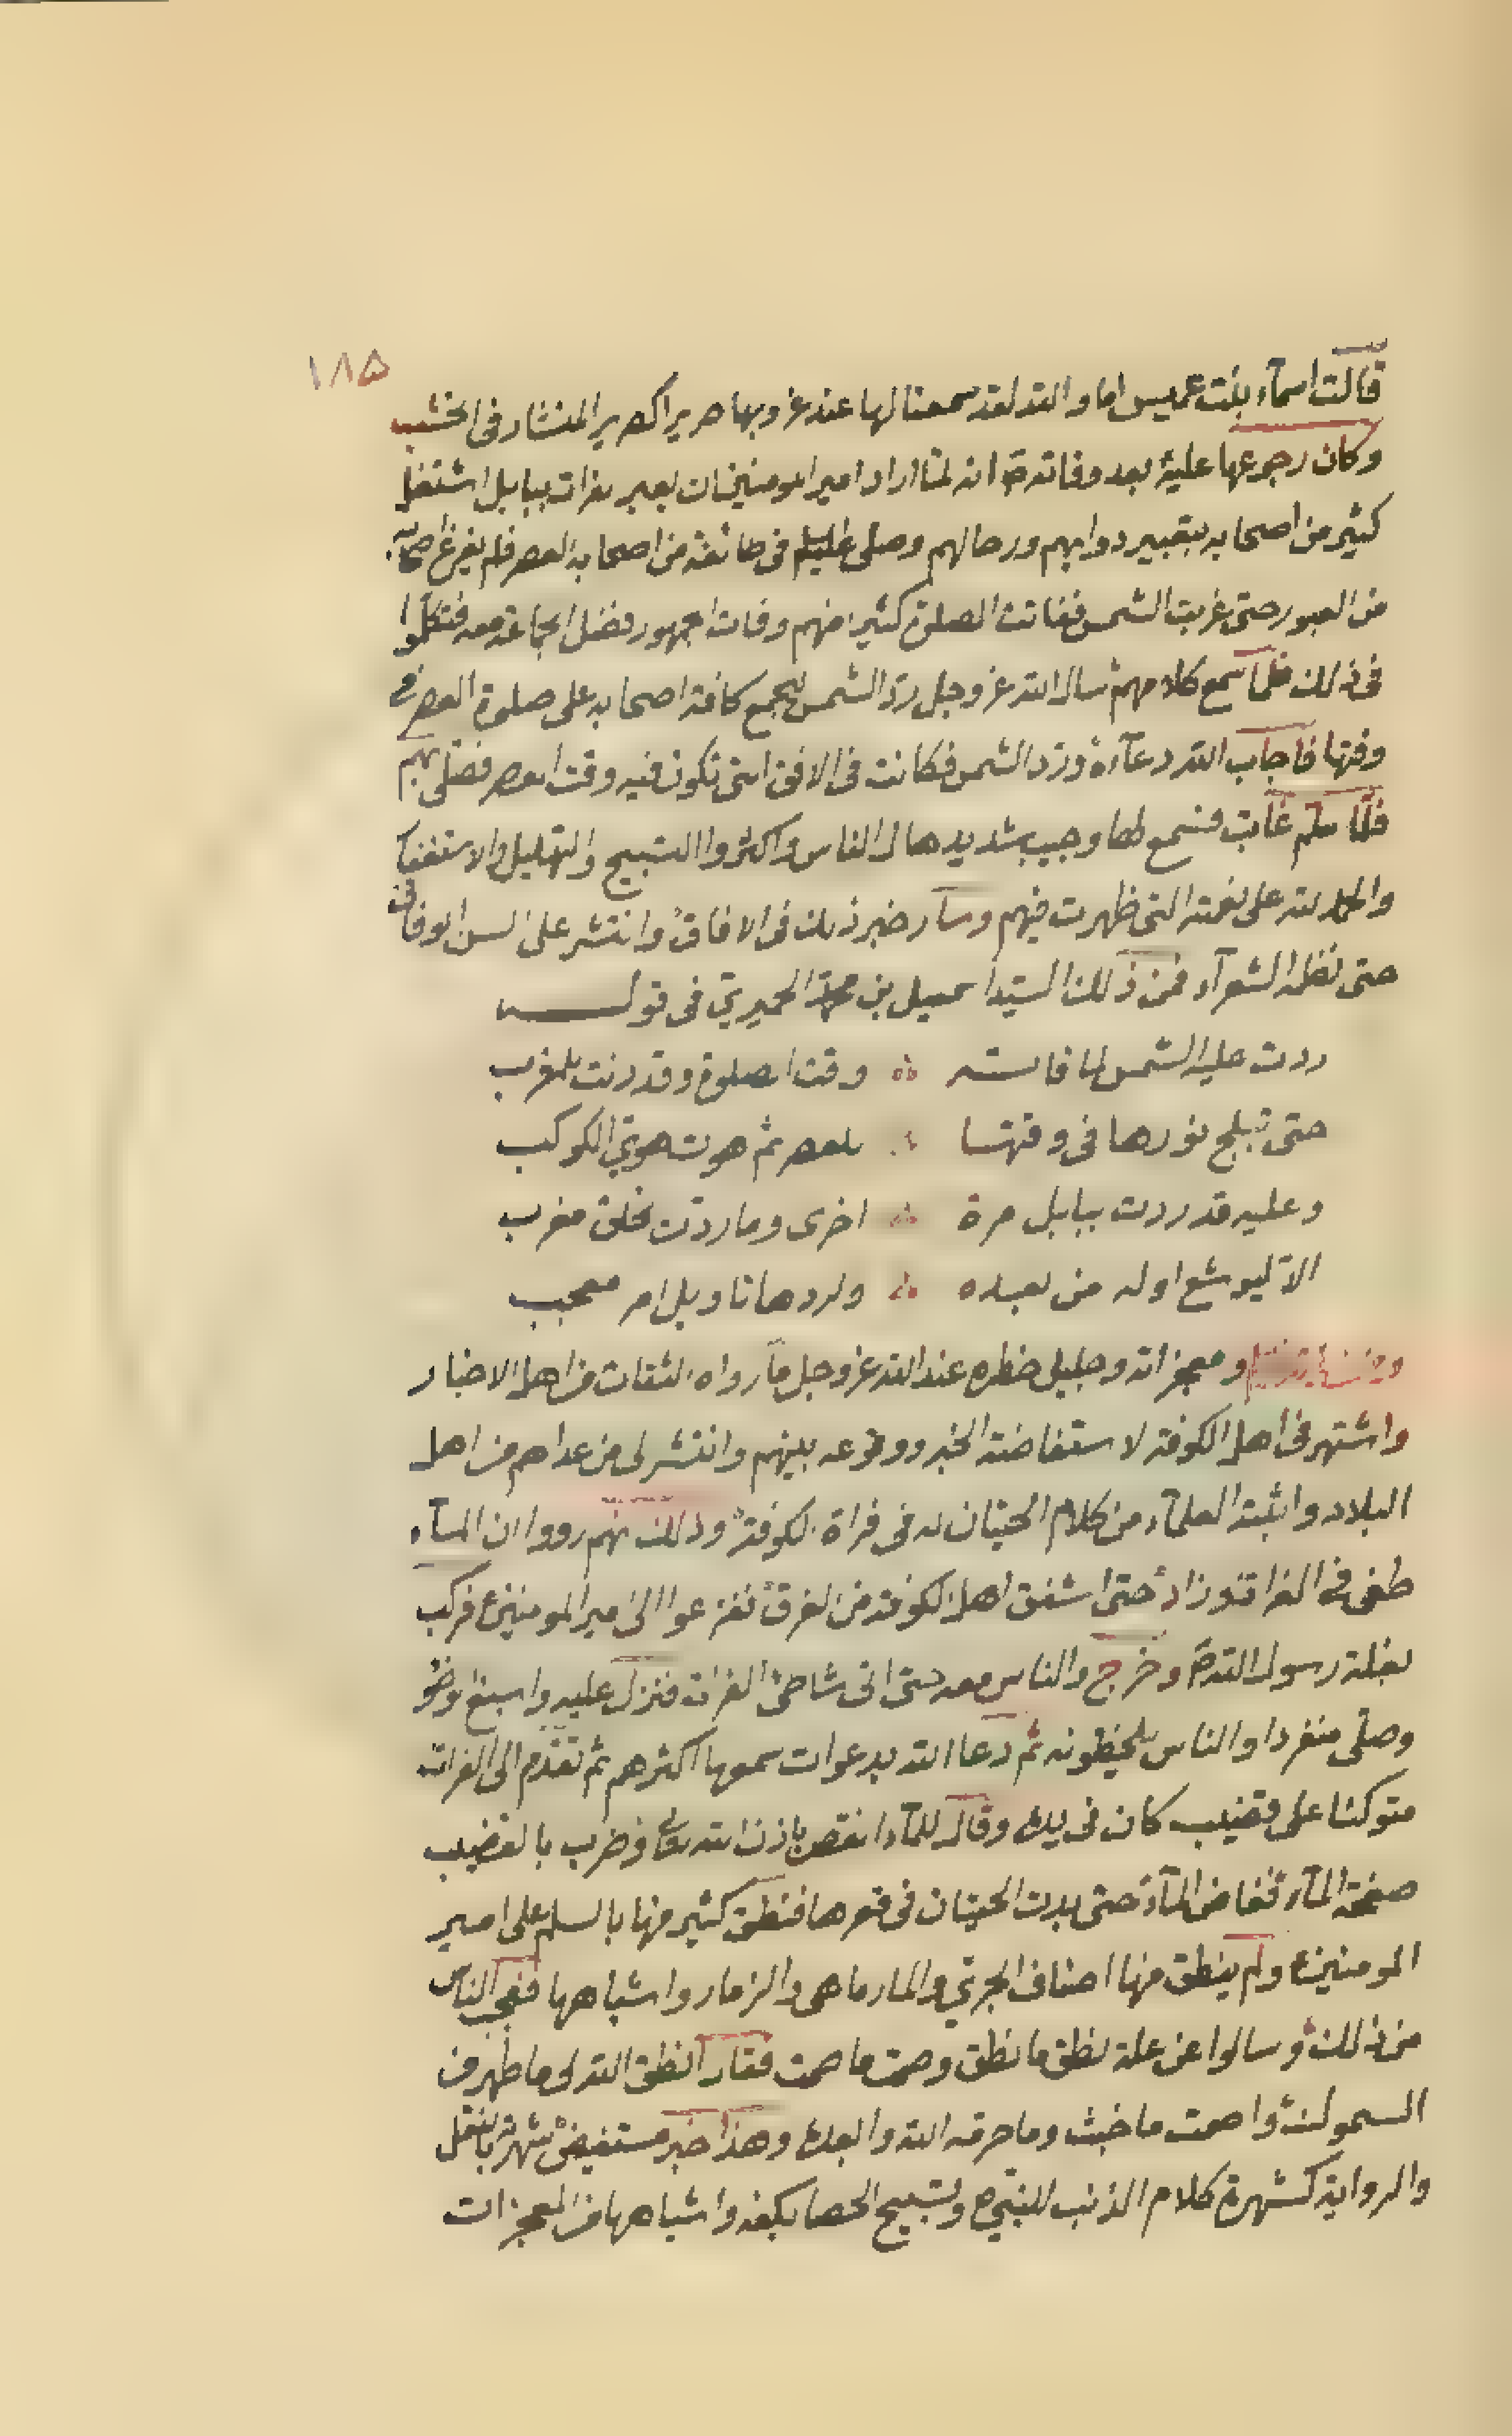 ١٨۵
قالت اسمآء بنت عميس اما والله لقد سمعنا لها عند غروبها صريرا كصرير المنشار فى الخشب
وكان رجوعها عليه بعد وفاته ص انه لمّا اراد امير المومنين ان يعبر بفرات ببابل اشتغل
كثير من اصحابه بتعبير دوابهم ورحالهم وصلى عليلم فى طائفة من اصحابه العصر فلم يفرغ اصحابه
من العبور حتى غربت الشمس ففاتت الصلوة كثيرا منهم وفات الجمهور فضل الجماعة معه فتكلموا
فى ذلك فلمّا سمع كلامهم سال الله عز وجل ردّ الشمس ليجمع كافة اصحابه على صلوة العصر فى
وقتها فاجاب الله دعآءه وردّ الشمس فكانت فى الافق التى تكون فيه وقت العصر فصلى بهم
فلمّا سلم غابت فسمع لها وجيب شديد هال الناس واكثروا التسبيح والتهليل والاستغفار
والحمد لله على نعمته التى ظهرت فيهم وسار خبر ذلك فى الافاق وانتشر على السن الوفاق
حتى نظمه الشعرآء فمن ذلك السيد اسمعيل بن محمد الحميرىّ فى قوله
ردت عليه الشمس لما فاسته ∴ وقت الصلوة وقد دنت للمغرب
حتى تبلج نورها فى وقتها ∴ للعصر ثم هوت هوىّ الكوكب
وعليه قد ردت ببابل مرة ∴ اخرى وما ردّت لخلق مغرب
الاّ ليوشع اوله من بعده ∴ ولردها تاويل امر معجب
ومعجزاته وجليل خطره عند الله عز وجل مآ رواه الثقات من اهل الاخبار
واشتهر فى اهل الكوفة لاستفاضة الخبر ووقوعه بينهم وانتشر لى من عداهم من اهل
البلاد واثبته العلمآء من كلام الحيتان له فى فراة الكوفة وذلك نهم رووا ان المآء
طغى فى الفرات وزاد حتى اشفق اهل الكوفة من الغرق ففزعوا الى امير المومنين ع فركب
بغلة رسول الله ص وخرج والناس معه حتى اتى شاطئ الفرات فنزل عليه واسبغ الوضوء
وصلّى منفردا والناس يلحظونه ثم دعا الله بدعوات سمعها اكثرهم ثم تقدّم الى الفرات
متوكئا على قضيب كان فى يده وقال للمآء انقص باذن الله تعالى وضرب بالقضيب
صفحة المآء فغاض المآء حتى بدت الحيتان فى قعرها فنطق كثير منها بالسلم على امير
المومنين ع ولم ينطق منها اصناف الجرىّ والمارماهى والزمار واشباهها فعجب الناس
من ذلك وسالوا عن علة نطق ما نطق وصمت ما صمت فقال انطق الله لى ما طهر من
السموك واصمت ما خبث وما حرقه الله والعده وهذا خبر مستفيض شهرته بالنقل
والرواية كشهرة كلام الذئب للنبى ص وتسبيح الحصا بكفه واشباهها من المعجزات